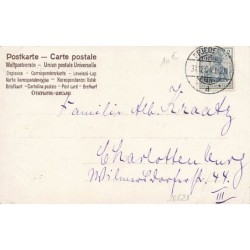 Postkarte — Carte postale
Weltpostverein — Union postale Universelle
Dopisnice — Correspondenzkarte — Levelező-Lap
Karta korespondencyjna — Korespondenční listek
Briefkaart — Cartolina postale — Post card — Brefkort
Открытое письмо
Familie Alb. Kraatz
Charlottenburg
Wilmersdorferstr. 44.
III